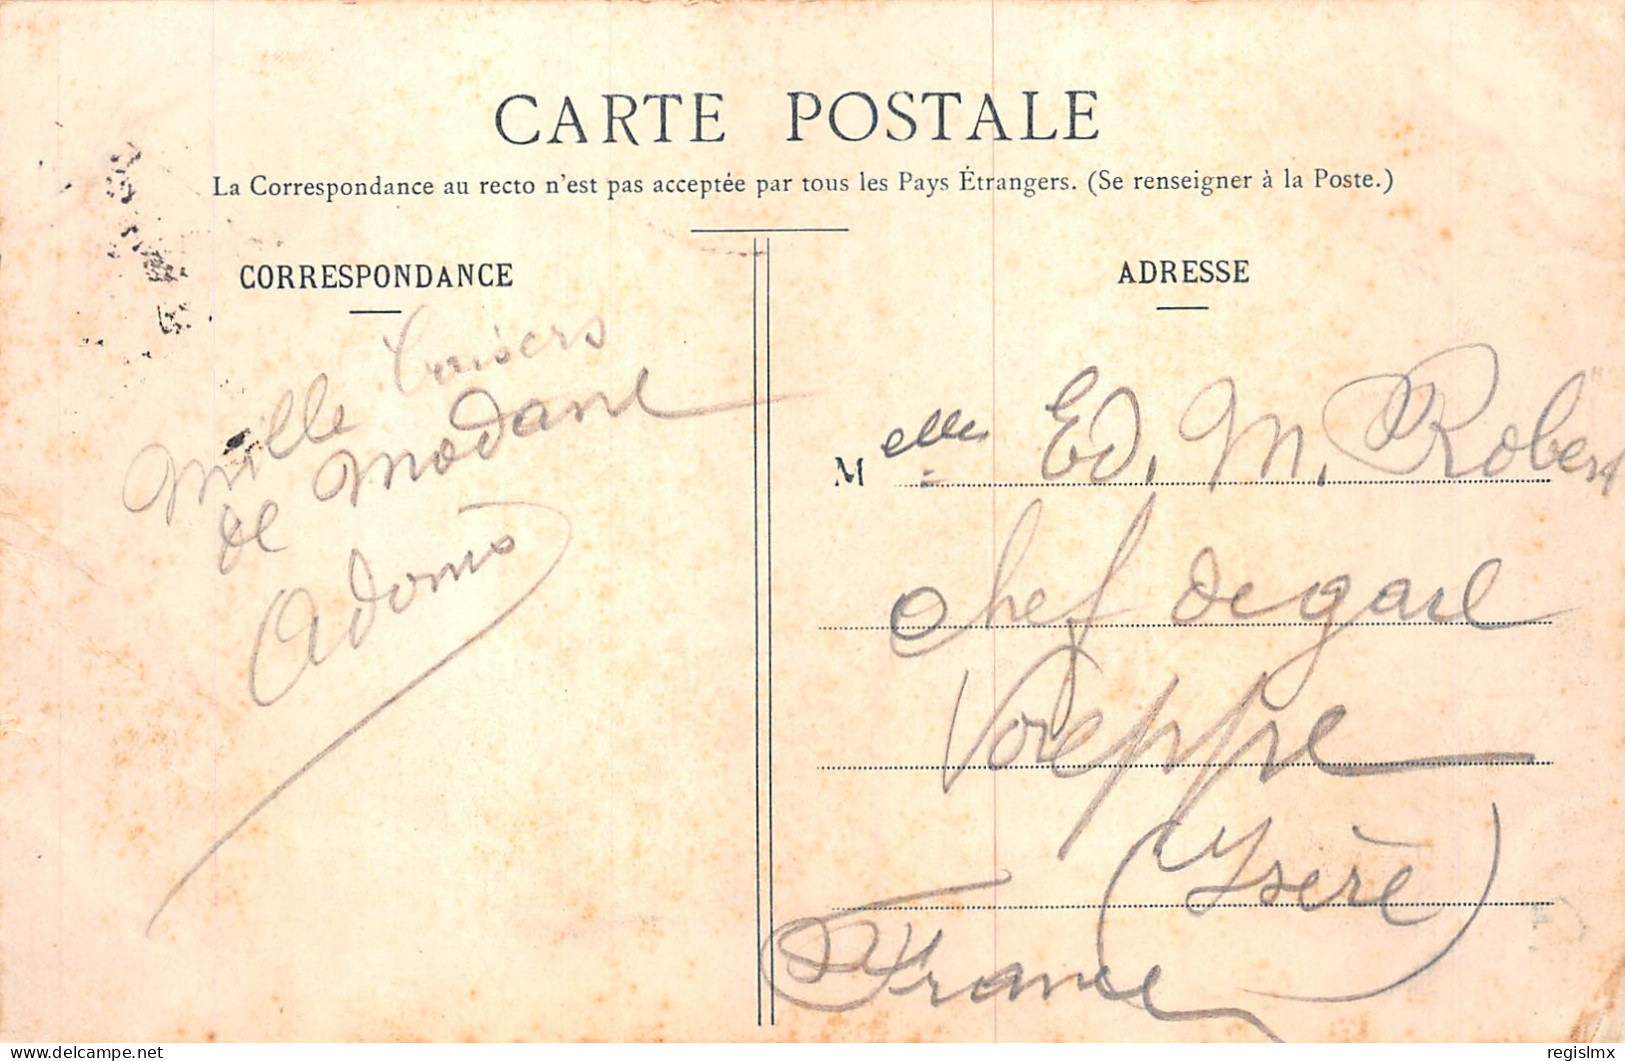 CARTE POSTALE
La Correspondance au recto n'est pas acceptée par tous les Pays Étrangers. (Se renseigner à la Poste.)
CORRESPONDANCE
Mille baisers
de Modane
Adonis
ADRESSE
Melles Ed. M. Robert
Chef de gare
Voreppe
(Isère)
France
delcampe.net
regislmx